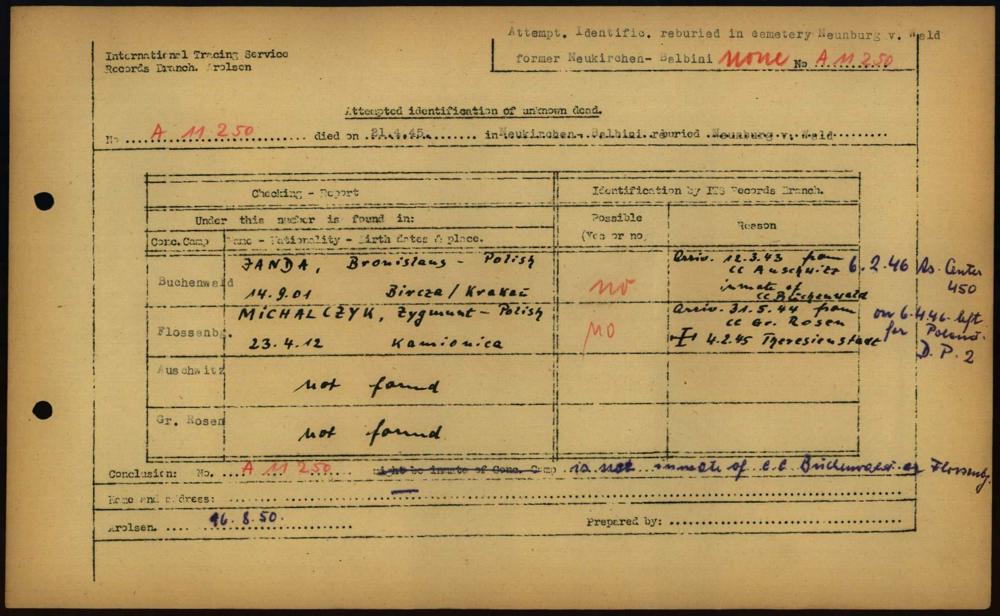 Attempt. Identific. reburied in cemetery Neunburg v. Wald
International Tracing Service
Records Branch. Arolsen
former Neukirchen- Balbini none No A 11 250
Attempted identification of unknown dead.
No A 11 250 died on 21.4.45. in Neukirchen- Balbini reburied Neunburg v. Wald
Checking - Report
Identification by ITS Records Branch.
Under this number is found in:
Possible
(Yes or no)
Reason
Conc. Camp
Name - Nationality - Birth dates & place.
Buchenwald
JANDA, Bronislaus - Polish
14.9.01 Bircza / Krakau
no
Arriv. 12.3.43 from
CC Auschwitz
inmate of
CC Buchenwald
6.2.46 As. Center
450
Flossenbg.
MICHALCZYK, Zygmunt - Polish
23.4.12 Kamionica
no
Arriv. 31.5.44 from
CC Gr. Rosen
4.2.45 Theresienstadt
on 6.4.46 left
for Poland.
D.P. 2
Auschwitz
not found
Gr. Rosen
not found
Conclusion: No. A 11 250 might be inmate of Conc. Camp is not inmate of C.C. Buchenwald or Flossenbg.
Name and address: —
Arolsen. 16.8.50.
Prepared by: